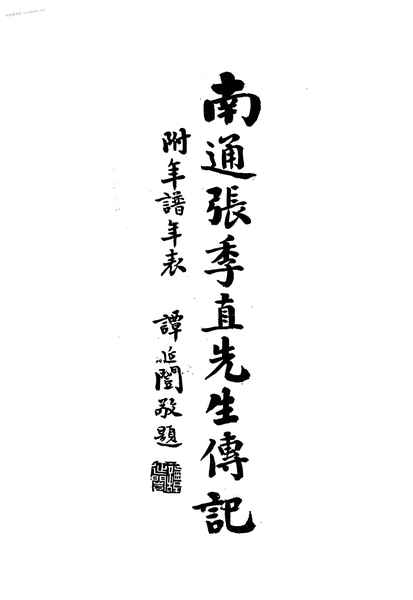 南通張季直先生傳記
附年譜年表
譚延闓敬題